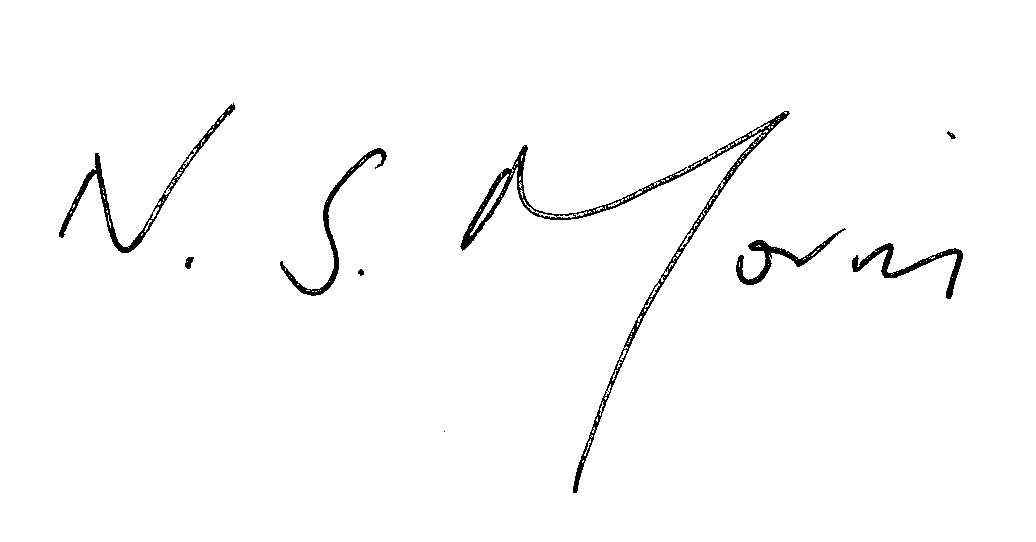 N. S. Morris